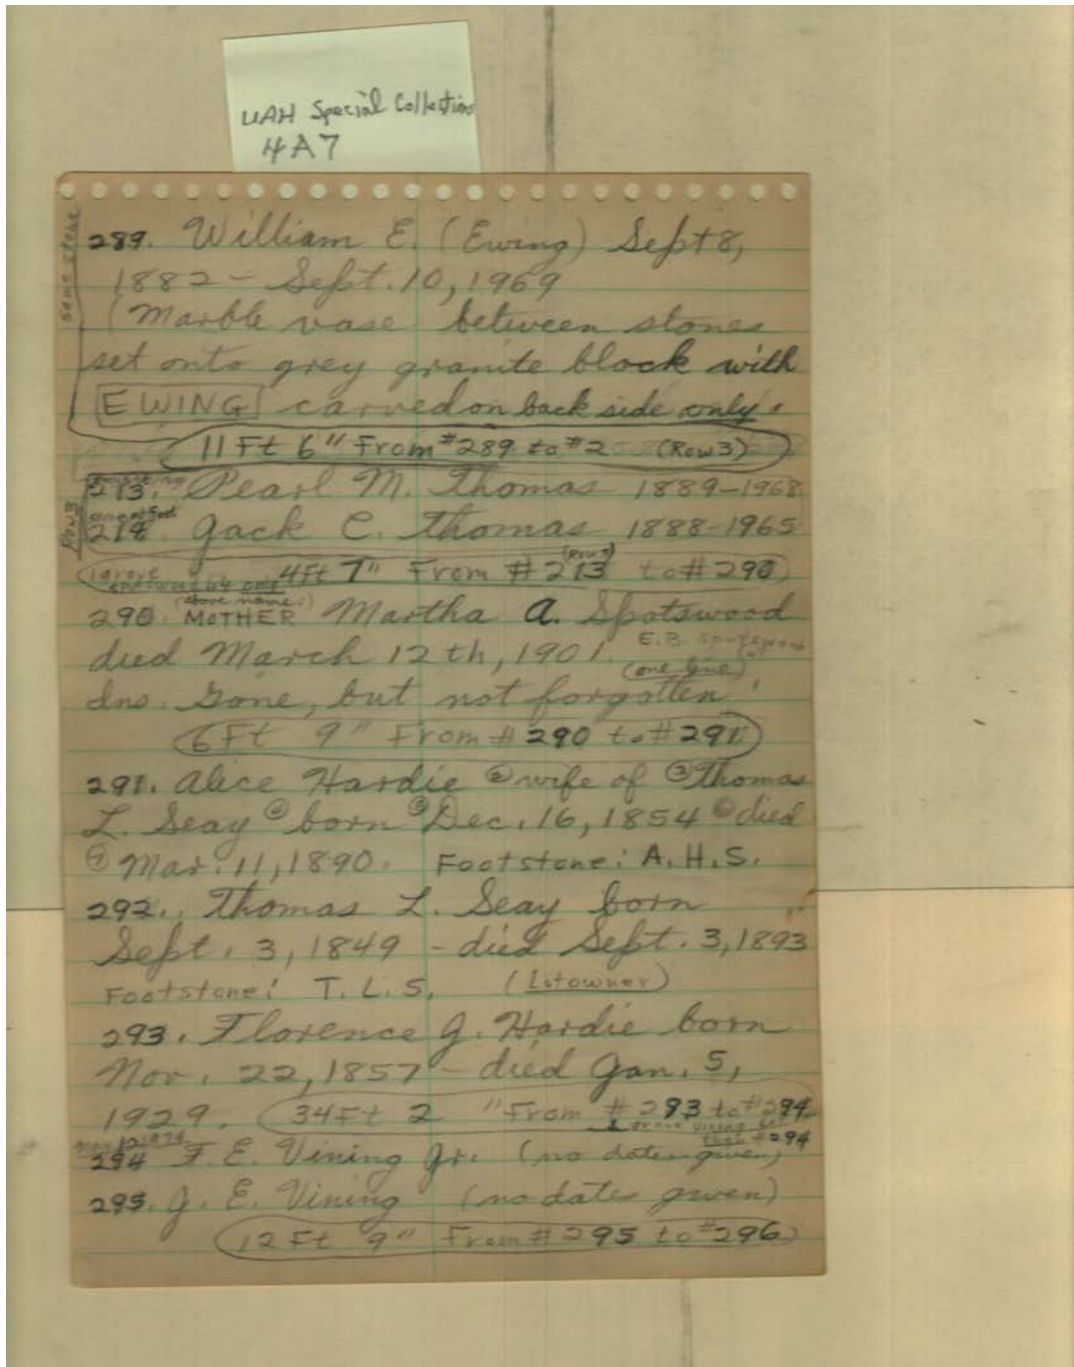 UAH Special Collections
4A7
same stone
289. William E. (Ewing) Sept 8,
1882 - Sept. 10, 1969
(Marble vase between stones
set onto grey granite block with
EWING carved on back side only.
11 Ft 6" From #289 to #2 (Row 3)
Row 3
273. Pearl M. Thomas 1889-1968
274 Jack C. Thomas 1888-1965
4Ft 7" From #273 (Row 3) to #290
1 grave
(above name)
290. MOTHER Martha A. Spotswood
died March 12th, 1901. E.B.
(one line)
Ins. Gone, but not forgotten
6Ft 9" From #290 to #291
291. Alice Hardie ② wife of ③ Thomas
L. Seay ④ born ⑤ Dec. 16, 1854 ⑥ died
⑦ Mar. 11, 1890. Footstone: A.H.S.
292. Thomas L. Seay born
Sept. 3, 1849 - died Sept. 3, 1893
Footstone: T.L.S. (Lotowner)
293. Florence J. Hardie born
Nov. 22, 1857 - died Jan. 5,
1929. 34Ft 2 "From #293 to #294
294 F. E. Vining Jr. (no dates given)
295. J. E. Vining (no date given)
12 Ft 9" From #295 to #296